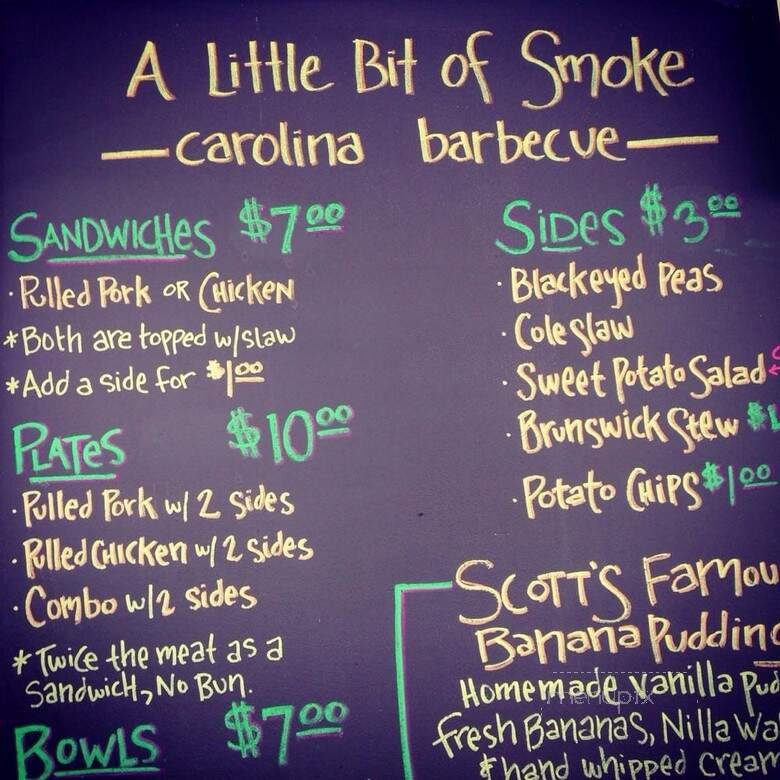 A Little Bit of Smoke
carolina barbecue
SANDWICHES $7.00
· Pulled Pork OR CHICKEN
* Both are topped w/slaw
* Add a side for $1.00
PLATES $10.00
· Pulled Pork w/ 2 Sides
· Pulled CHICKEN w/ 2 Sides
· Combo w/2 sides
* Twice the meat as a
Sandwich, No Bun.
BOWLS $7.00
SIDES $3.00
· Blackeyed Peas
· Cole slaw
· Sweet Potato Salad
· Brunswick Stew $
· Potato CHIPS $1.00
SCOTT'S FAMOU
Banana Pudding
Homemade Vanilla Pud
fresh Bananas, Nilla Wa
& hand whipped cream
menupix